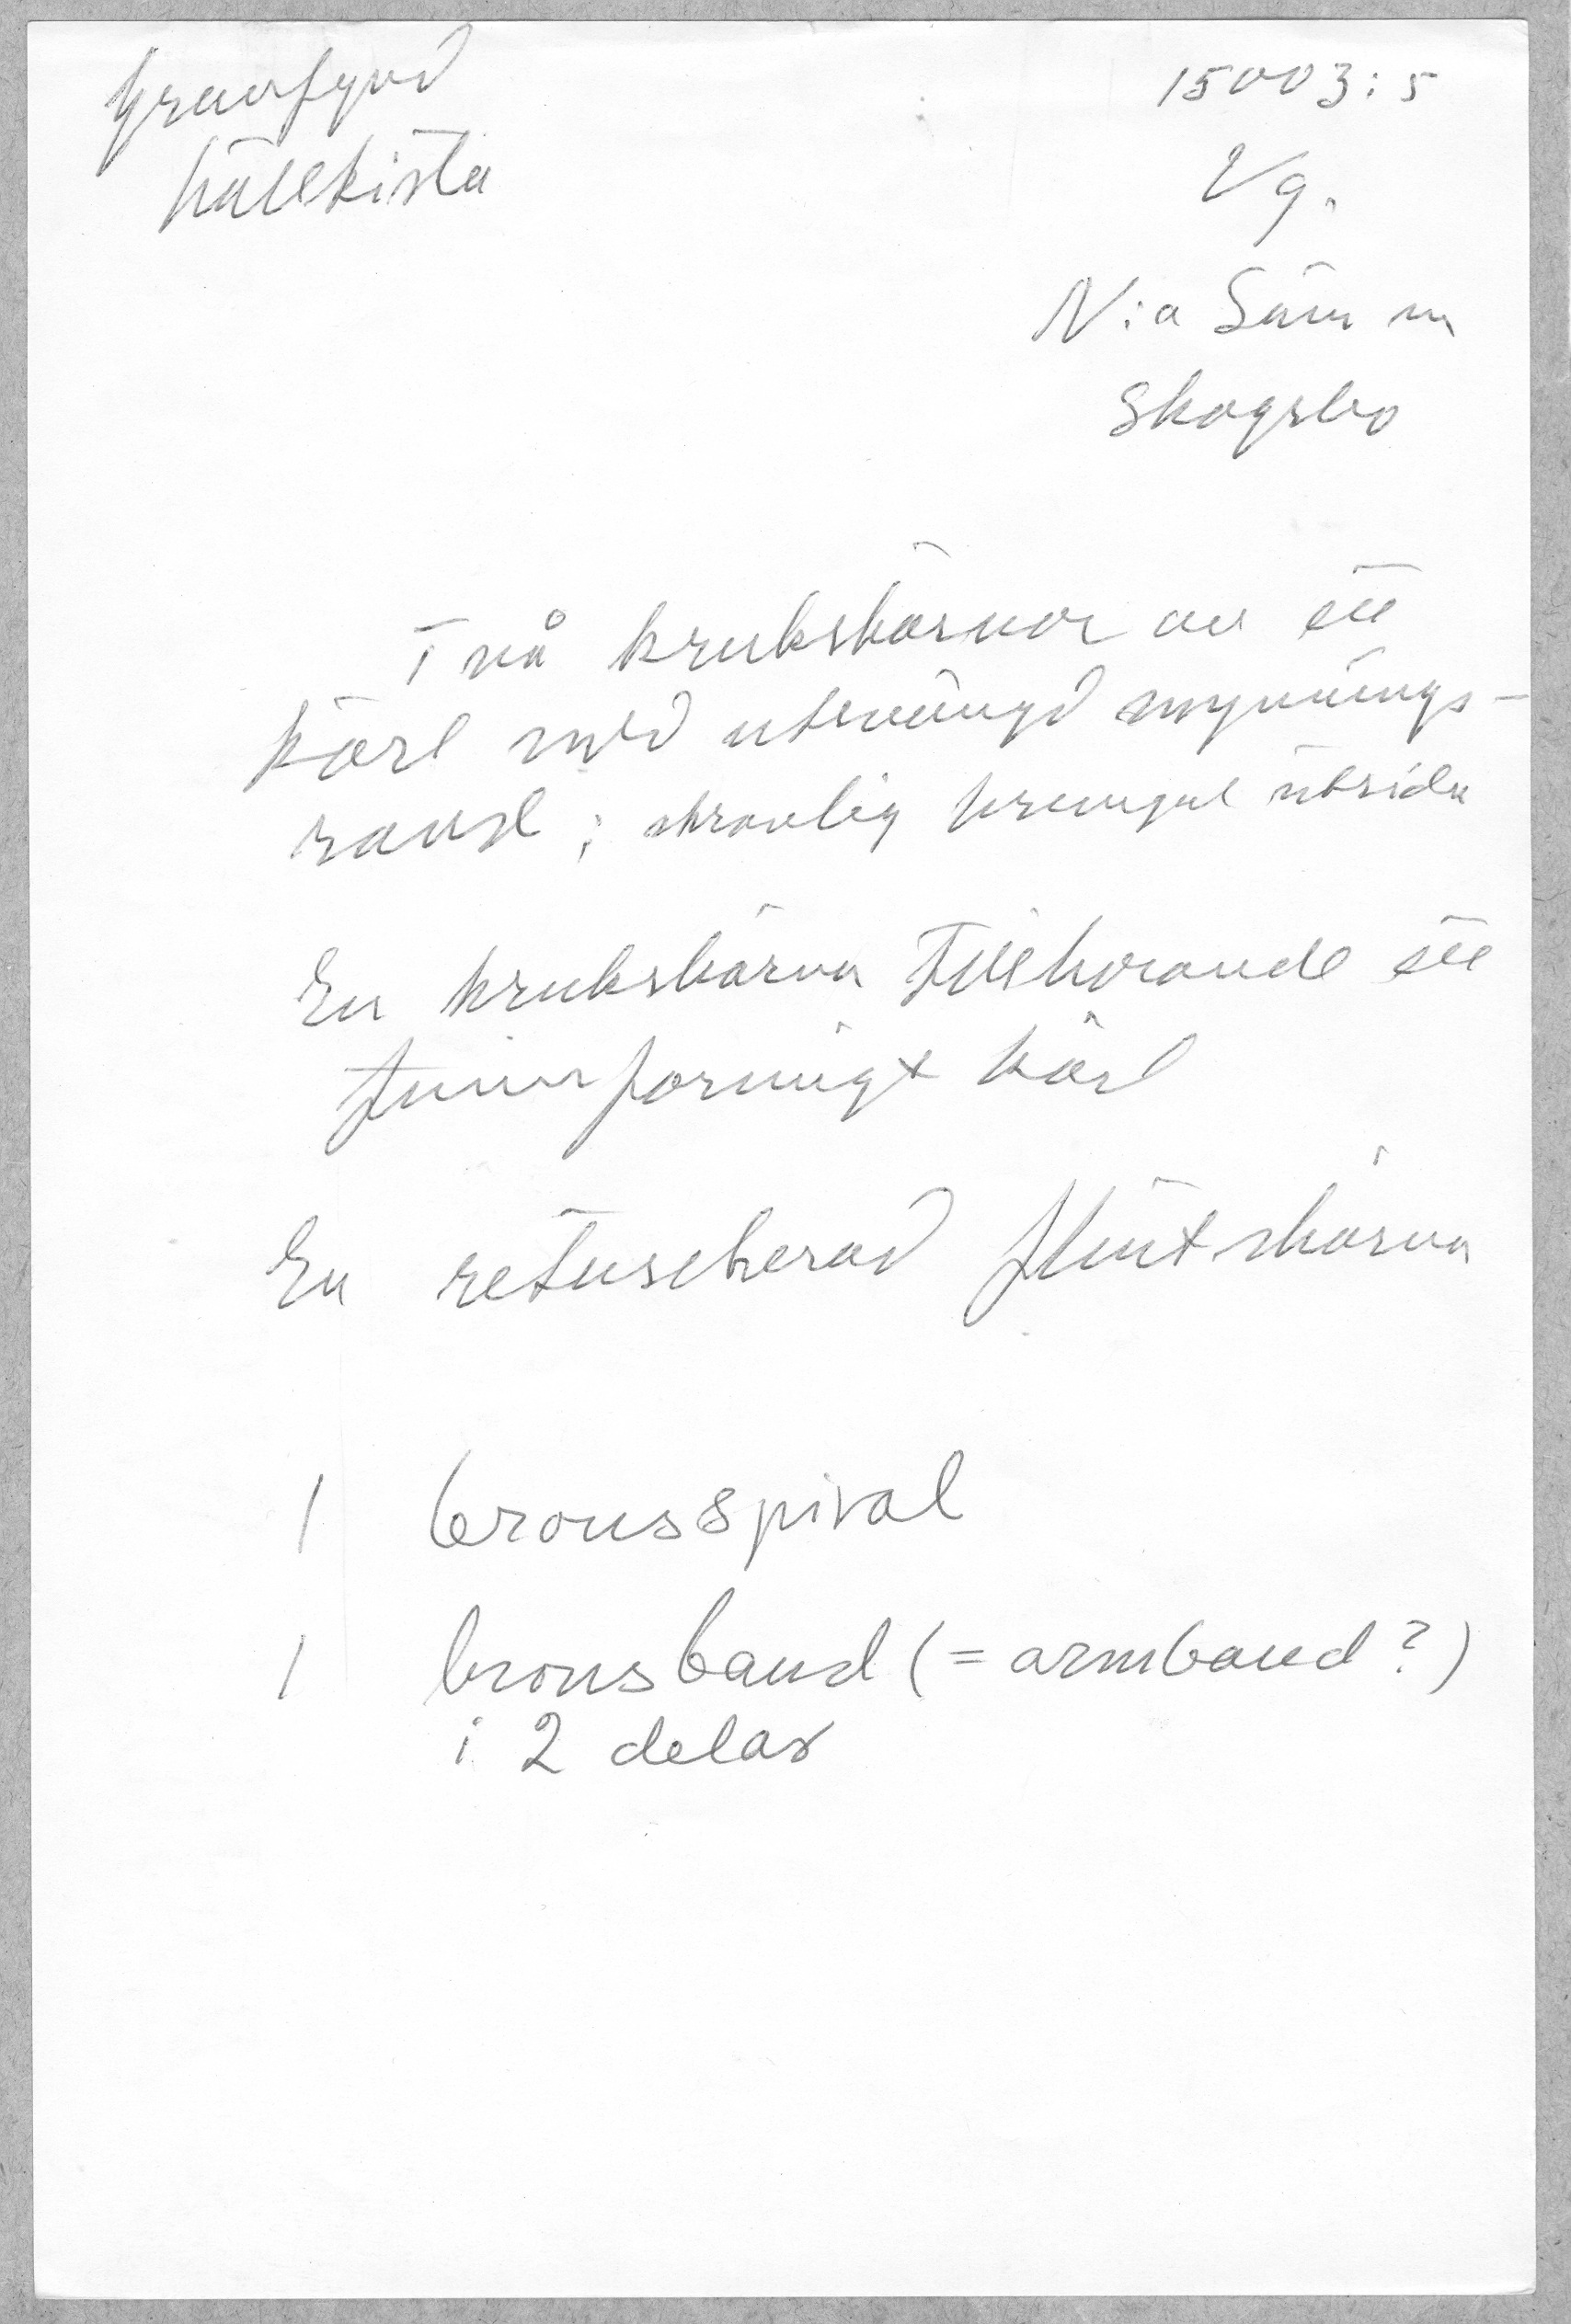 Gravfynd
hällkista
15003:5
Vg.
N:a Säm sn
Skogsbo
Två krukskärvor av ett
kärl med utsvängd mynnings-
rand; skrovlig utsida
En krukskärva tillhörande ett
tunnformigt kärl
En retuscherad flintskärva
1 bronsspiral
1 bronsband (= armband?)
i 2 delar